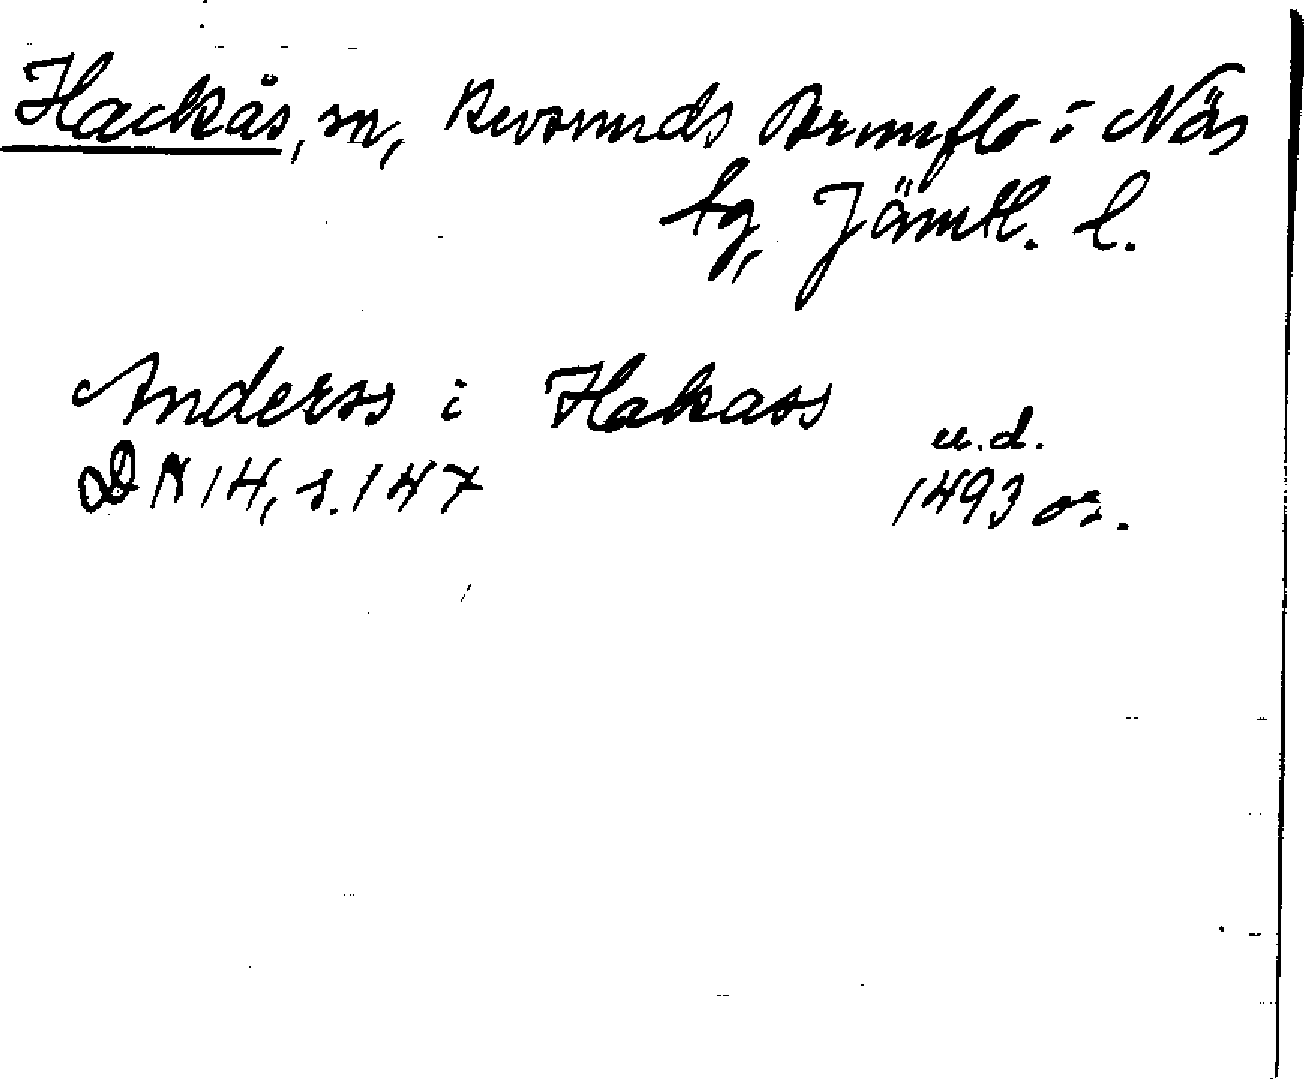 Hackås, sn, Revsunds Brunflo i Näs
tg, Jämtl. l.
Anderss i Hakass
u.d.
DN 14, s. 147
1493 or.